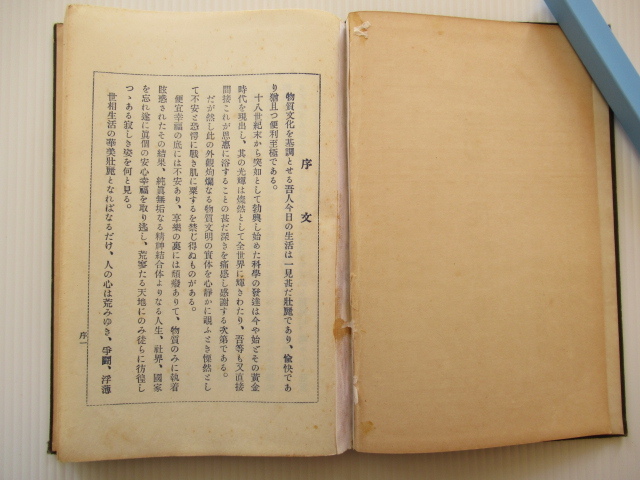 序文
物質文化を基調とせる吾人今日の生活は一見甚だ壯麗であり、愉快であ
り猶且つ便利至極である。
十八世紀末から突如として勃興し始めた科學の發達は今や殆どその黃金
時代を現出し、其の光輝は燦然として全世界に輝きわたり、吾等も又直接
間接これが恩惠に浴することの甚だ深きを痛感し感謝する次第である。
だが然し此の外觀絢爛なる物質文明の實体を心靜かに觀ふとき慄然とし
て不安と恐怖に戰き肌に粟するを禁じ得ぬものがある。
便宜幸福の底には不安あり、享樂の裏には頽廢ありて、物質のみに執着
眩惑されたその結果、純眞無垢なる精神結合体よりなる人生、社界、國家
を忘れ遂に眞個の安心幸福を取り逃し、荒寥たる天地にのみ徒らに彷徨し
つゝある寂しき姿を何と見る。
世相生活の華美壯麗となればなるだけ、人の心は荒みゆき、爭鬪、浮薄
序一